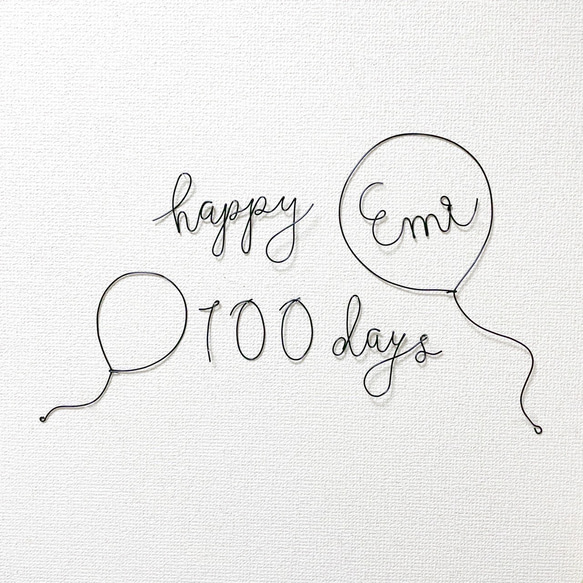 happy
Emi
100 days